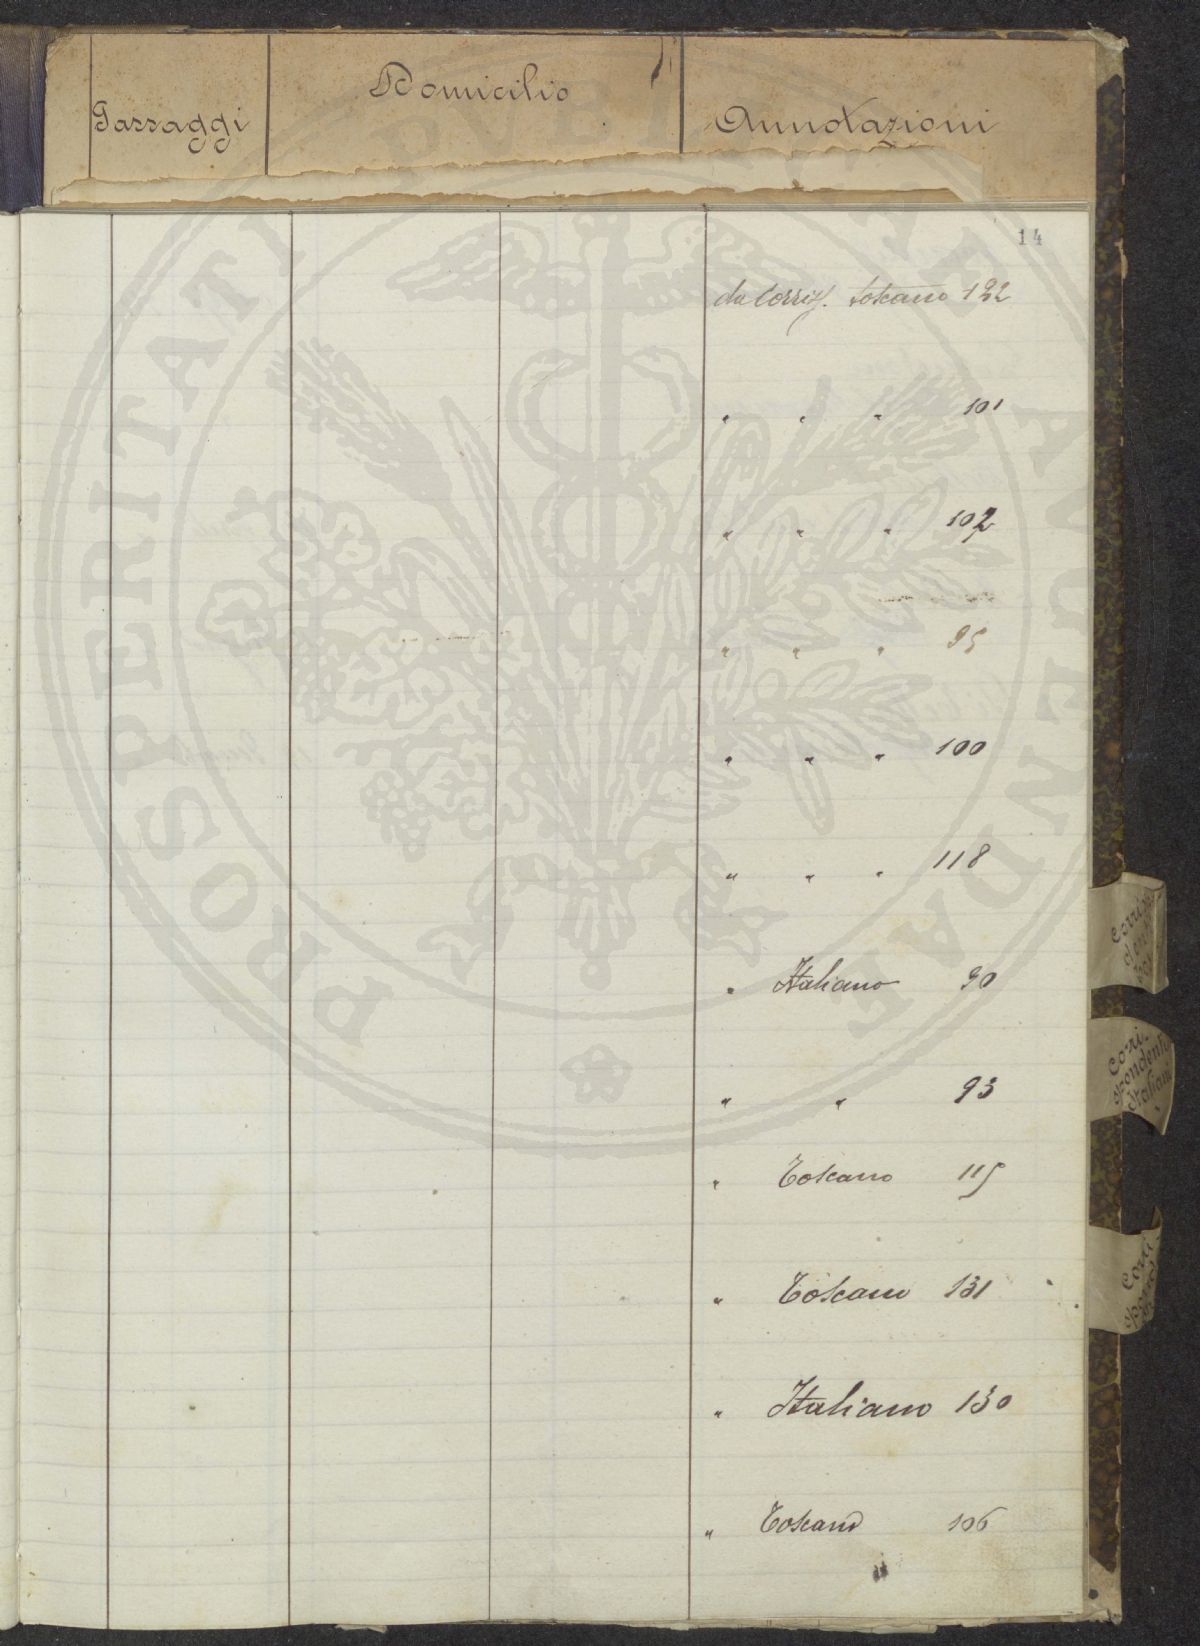 Passaggi
Domicilio
Annotazioni
14
da Corrisp. toscano 122
" " " 101
" " " 102
" " " 95
" " " 100
" " " 118
" Italiano 90
" " 93
" Toscano 115
" Toscano 131
" Italiano 130
" Toscano 106
Corri
spondenti
Italiani
Corri
PROSPERITATI PUBLICAE AUGENDAE